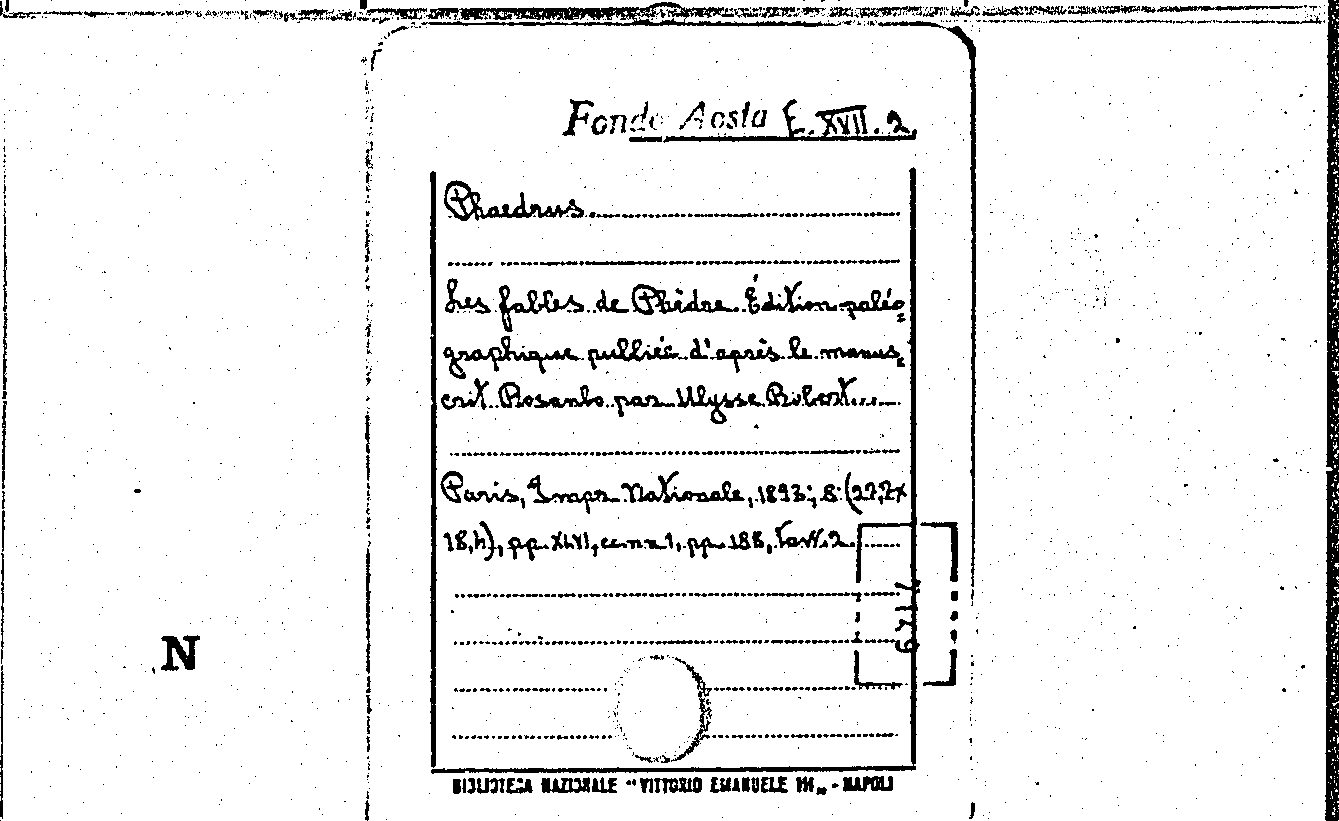 Fondo Aosta E. XVII. 2.
Phaedrus.
Les fables de Phèdre. Édition paléo=
graphique publiée d'après le manus=
crit Rosanbo par Ulysse Robert...
Paris, Impr. Nationale, 1893; 8. (27,7x
18,4), pp. XLVI, cc.nn 1, pp. 188, tavv. 2.
N
BIBLIOTECA NAZIONALE "VITTORIO EMANUELE III„ - NAPOLI